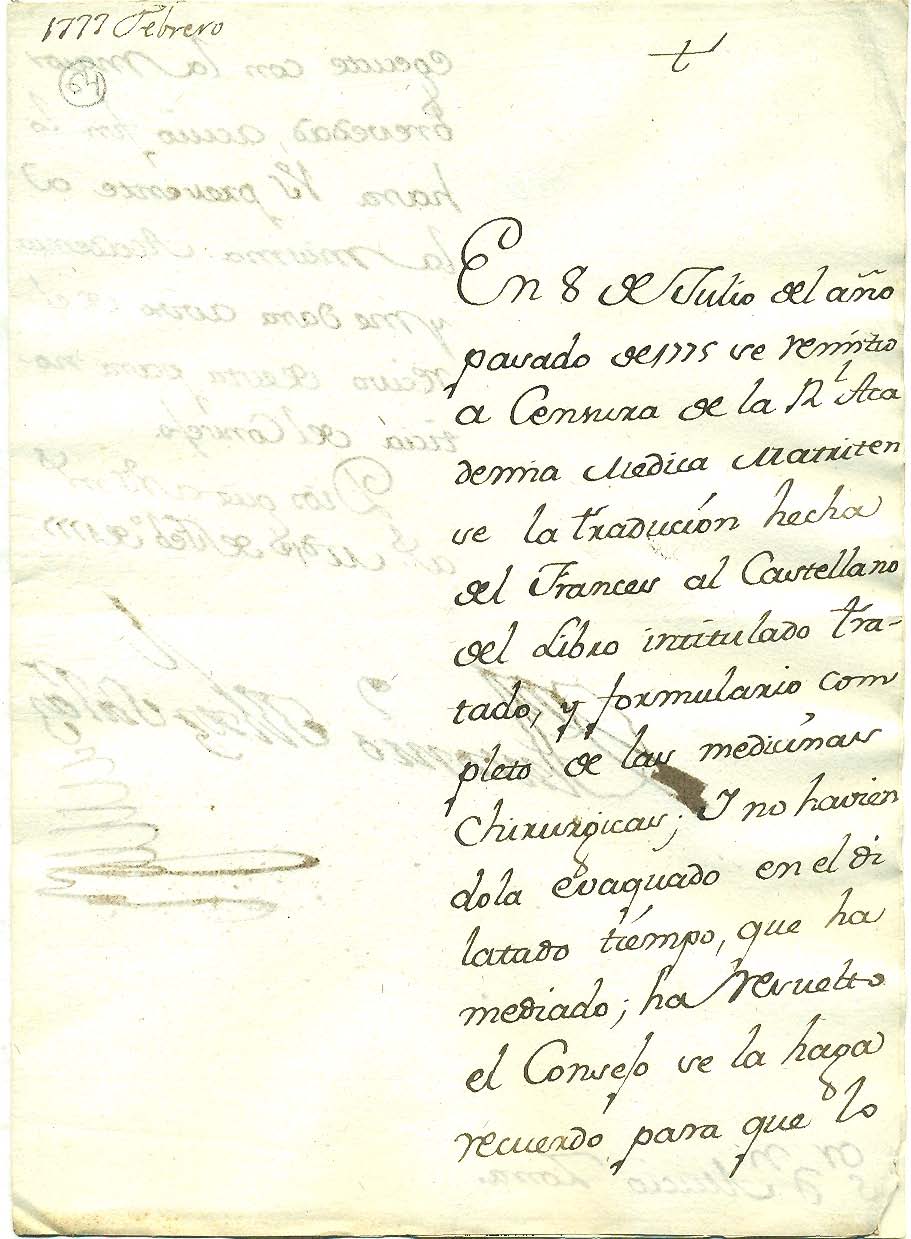 1777 Febrero
64
En 8 de Julio del año
pasado de 1775 se remitio
a Censura de la Rl. Aca
demia Medica Matriten
se la traducion hecha
del Frances al Castellano
del Libro intitulado tra-
tado, y formulario com
pleto de las medicinas
Chirurgicas; Y no havien
dola evaquado en el di
latado tiempo, que ha
mediado; ha resuelto
el Consejo se la haga
recuerdo para que lo